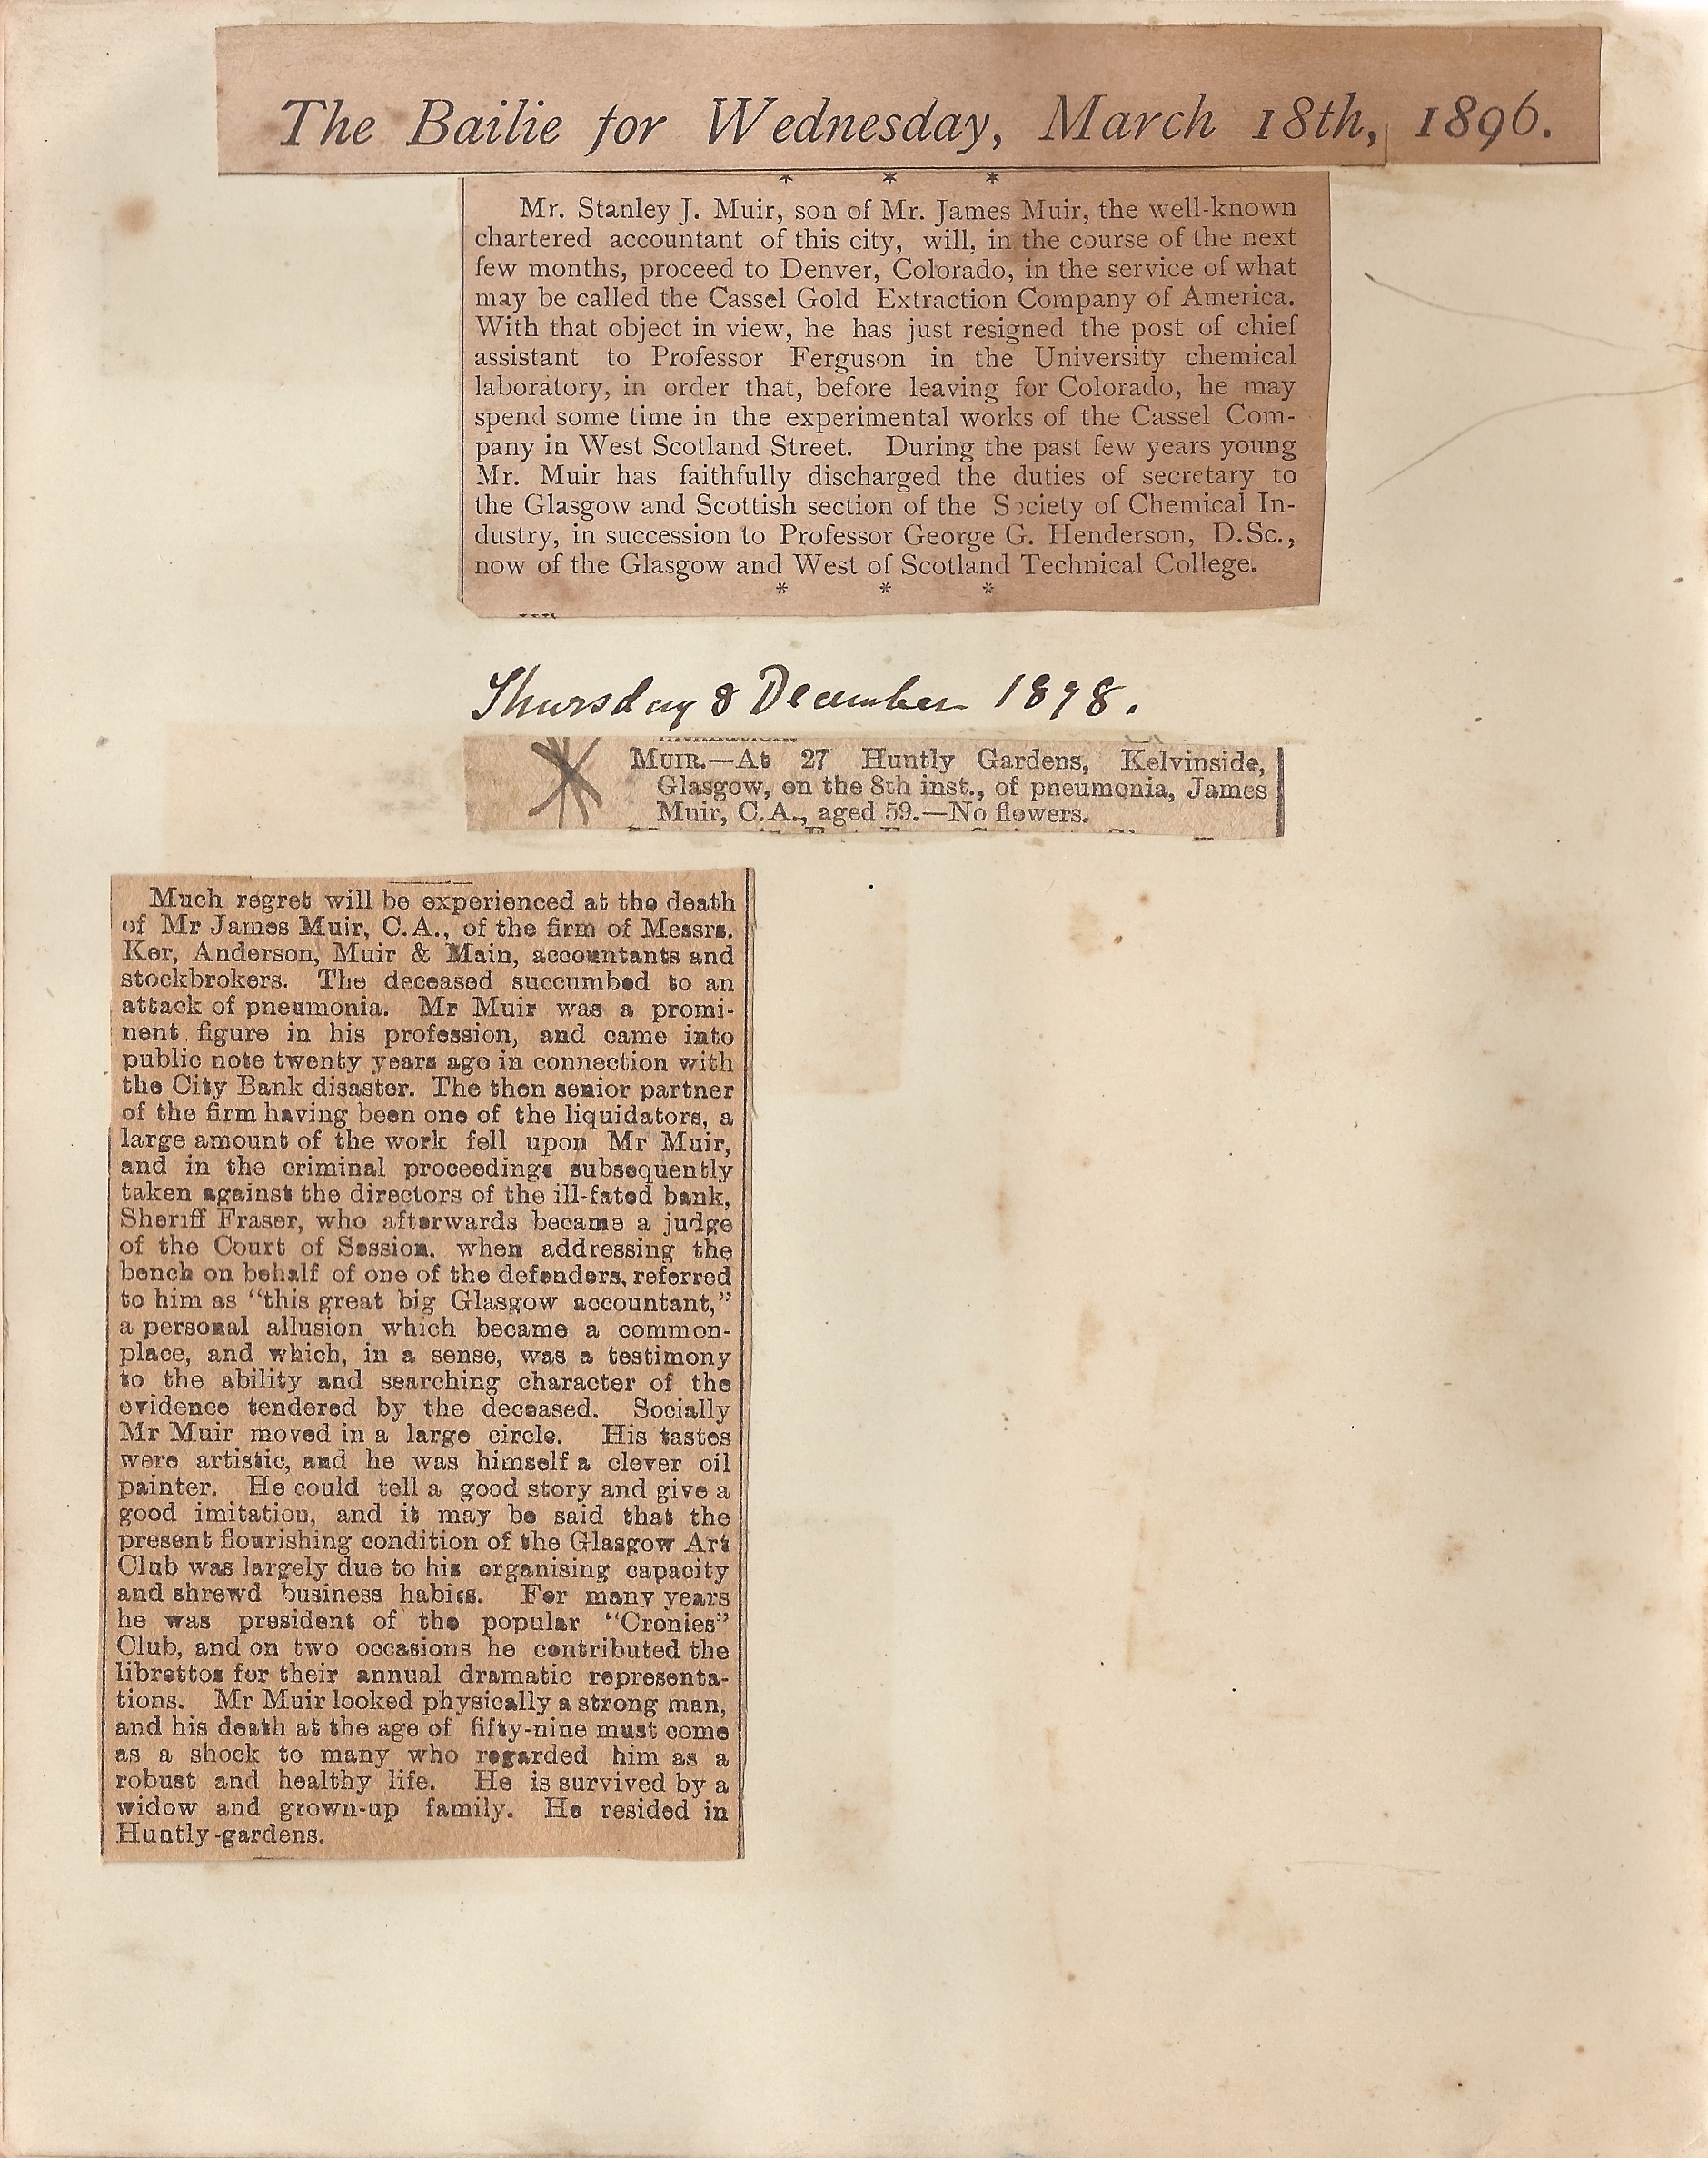 The Bailie for Wednesday, March 18th, 1896.
* * *
Mr. Stanley J. Muir, son of Mr. James Muir, the well-known
chartered accountant of this city, will, in the course of the next
few months, proceed to Denver, Colorado, in the service of what
may be called the Cassel Gold Extraction Company of America.
With that object in view, he has just resigned the post of chief
assistant to Professor Ferguson in the University chemical
laboratory, in order that, before leaving for Colorado, he may
spend some time in the experimental works of the Cassel Com-
pany in West Scotland Street. During the past few years young
Mr. Muir has faithfully discharged the duties of secretary to
the Glasgow and Scottish section of the Society of Chemical In-
dustry, in succession to Professor George G. Henderson, D.Sc.,
now of the Glasgow and West of Scotland Technical College.
* * *
Thursday 8 December 1898.
MUIR.—At 27 Huntly Gardens, Kelvinside,
Glasgow, on the 8th inst., of pneumonia, James
Muir, C.A., aged 59.—No flowers.
Much regret will be experienced at the death
of Mr James Muir, C.A., of the firm of Messrs.
Ker, Anderson, Muir & Main, accountants and
stockbrokers. The deceased succumbed to an
attack of pneumonia. Mr Muir was a promi-
nent figure in his profession, and came into
public note twenty years ago in connection with
the City Bank disaster. The then senior partner
of the firm having been one of the liquidators, a
large amount of the work fell upon Mr Muir,
and in the criminal proceedings subsequently
taken against the directors of the ill-fated bank,
Sheriff Fraser, who afterwards became a judge
of the Court of Session, when addressing the
bench on behalf of one of the defenders, referred
to him as "this great big Glasgow accountant,"
a personal allusion which became a common-
place, and which, in a sense, was a testimony
to the ability and searching character of the
evidence tendered by the deceased. Socially
Mr Muir moved in a large circle. His tastes
were artistic, and he was himself a clever oil
painter. He could tell a good story and give a
good imitation, and it may be said that the
present flourishing condition of the Glasgow Art
Club was largely due to his organising capacity
and shrewd business habits. For many years
he was president of the popular "Cronies"
Club, and on two occasions he contributed the
librettos for their annual dramatic representa-
tions. Mr Muir looked physically a strong man,
and his death at the age of fifty-nine must come
as a shock to many who regarded him as a
robust and healthy life. He is survived by a
widow and grown-up family. He resided in
Huntly-gardens.